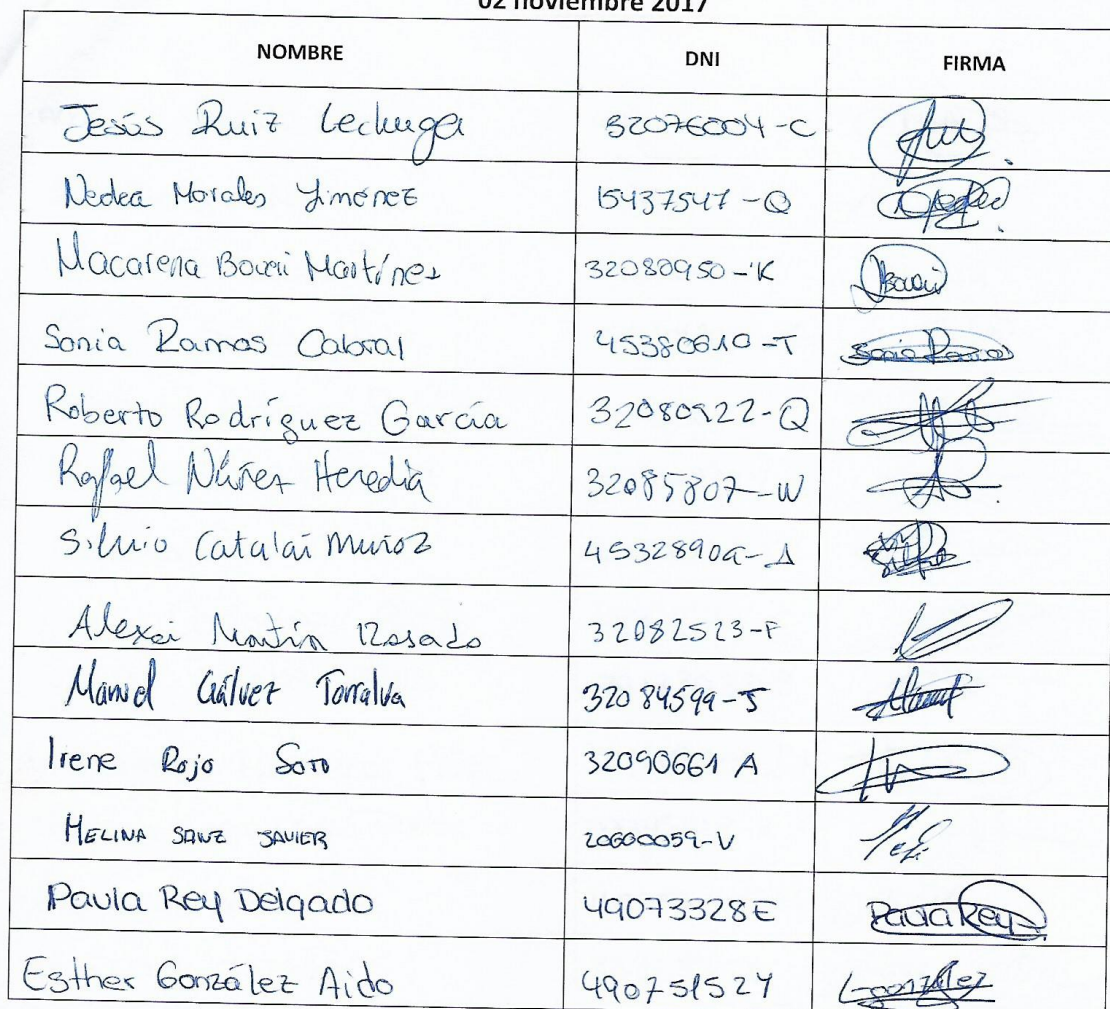 02 noviembre 2017
NOMBRE DNI FIRMA
Jesús Ruiz Lechuga 32076004-C
Nedea Morales Jiménez 15437547-Q
Macarena Martínez 32080950-K
Sonia Ramos Cabral 45380610-T Sonia Ramos
Roberto Rodríguez García 32080922-Q
Rafael Núñez Heredia 32085807-W
Silvio Catalán Muñoz 4532890a-A
Alexei Martín Rosado 32082523-F
Manuel Gálvez Torralva 32084599-J
Irene Rojo Soto 32090661 A
MELINA SANZ JAVIER 20600059-V
Paula Rey Delgado 49073328E Paula Rey
Esther González Aido 49075152Y González